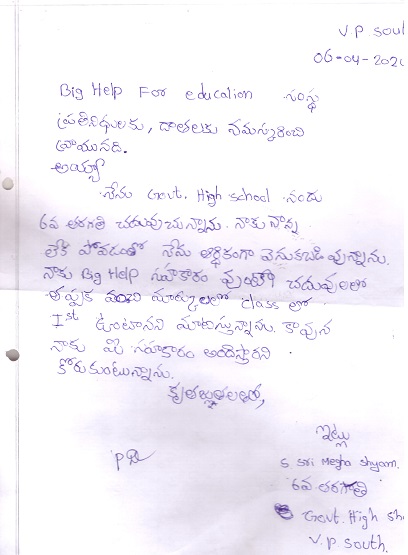 V.P South
06-04-202
Big Help For education సంస్థ
ప్రతినిధులకు, దాతలకు నమస్కరించి
వ్రాయునది.
అయ్యా
నేను Govt. High school నందు
6వ తరగతి చదువుచున్నాను. నాకు నాన్న
లేక పోవడంతో నేను ఆర్థికంగా వెనుకబడి వున్నాను.
నాకు Big Help సహకారం వుంటే చదువులలో
తప్పక మంచి మార్కులలో class లో
Ist ఉంటానని మాటిస్తున్నాను. కావున
నాకు మీ సహకారం అందిస్తారని
కోరుకుంటున్నాను.
కృతజ్ఞతలతో,
ఇట్లు
S. Sri Megha Shyam.
6వ తరగతి
Govt. High
V.P South.